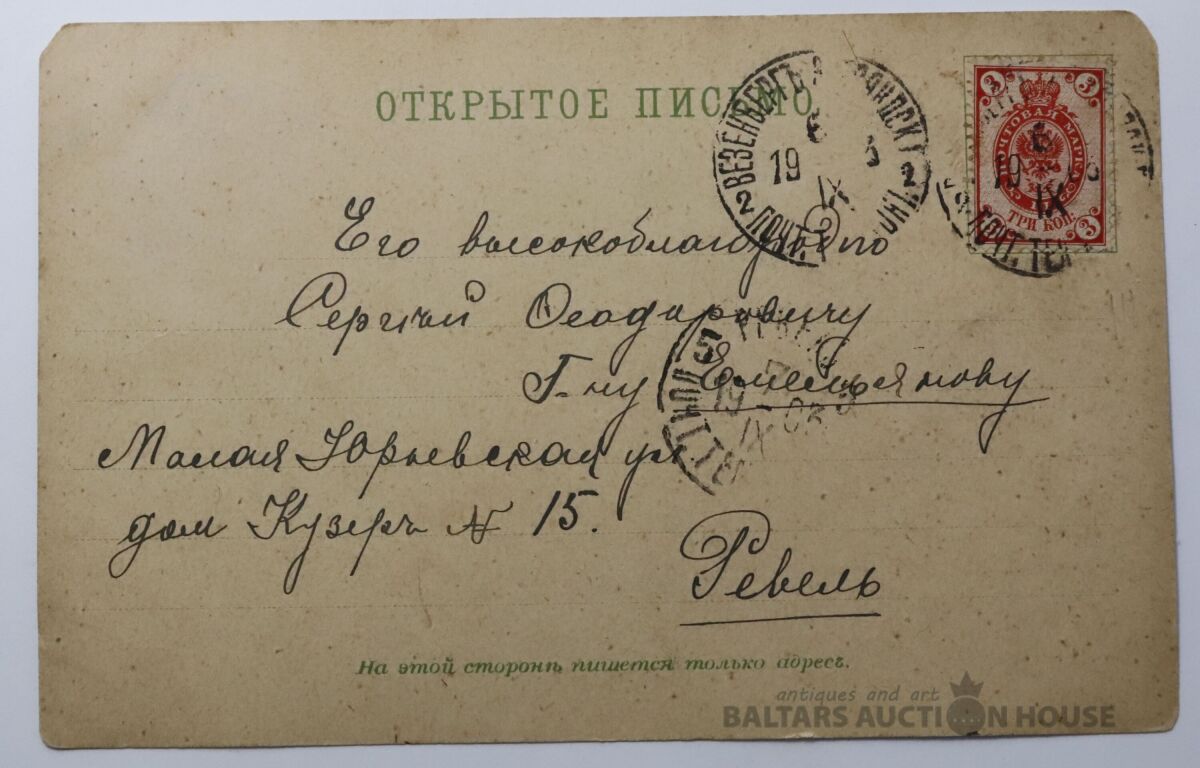 ОТКРЫТОЕ ПИСЬМО.
ВЕЗЕНБЕРГЪ
2 ПОЧТ.
19 6 IX 3
3 3
ПОЧТОВАЯ МАРКА
ТРИ КОП.
3 3
6
19 IX
ПОЧТ. ТЕЛ
Его высокоблагородію
Сергѣй Ѳеодоровичу
Г-ну Емельянову
Малая Юрьевская ул
дом Кузеръ № 15.
Ревель
5
19 IX 03
На этой сторонѣ пишется только адресъ.
antiques and art
BALTARS AUCTION HOUSE